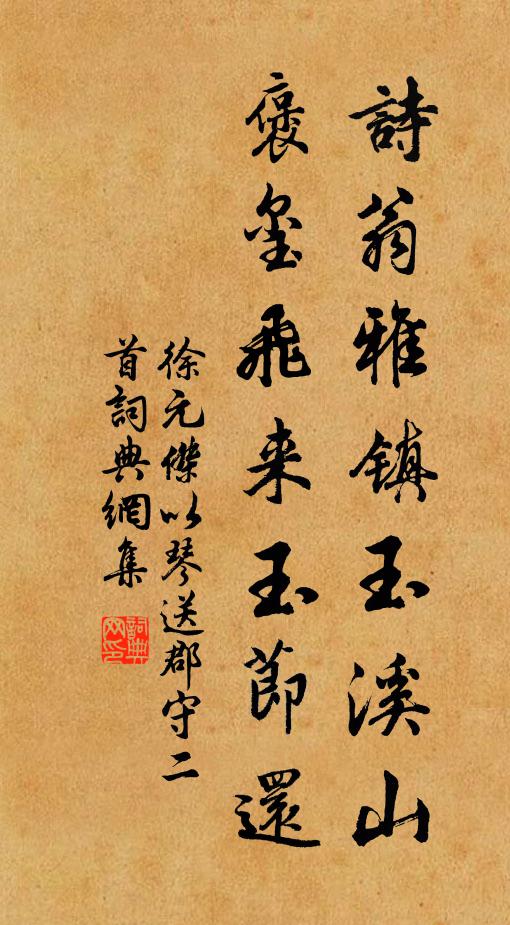 詩翁雅鎮玉溪山
褒璽飛来玉節還
徐元傑以琴送郡守二
首詞典網集
詞典网印